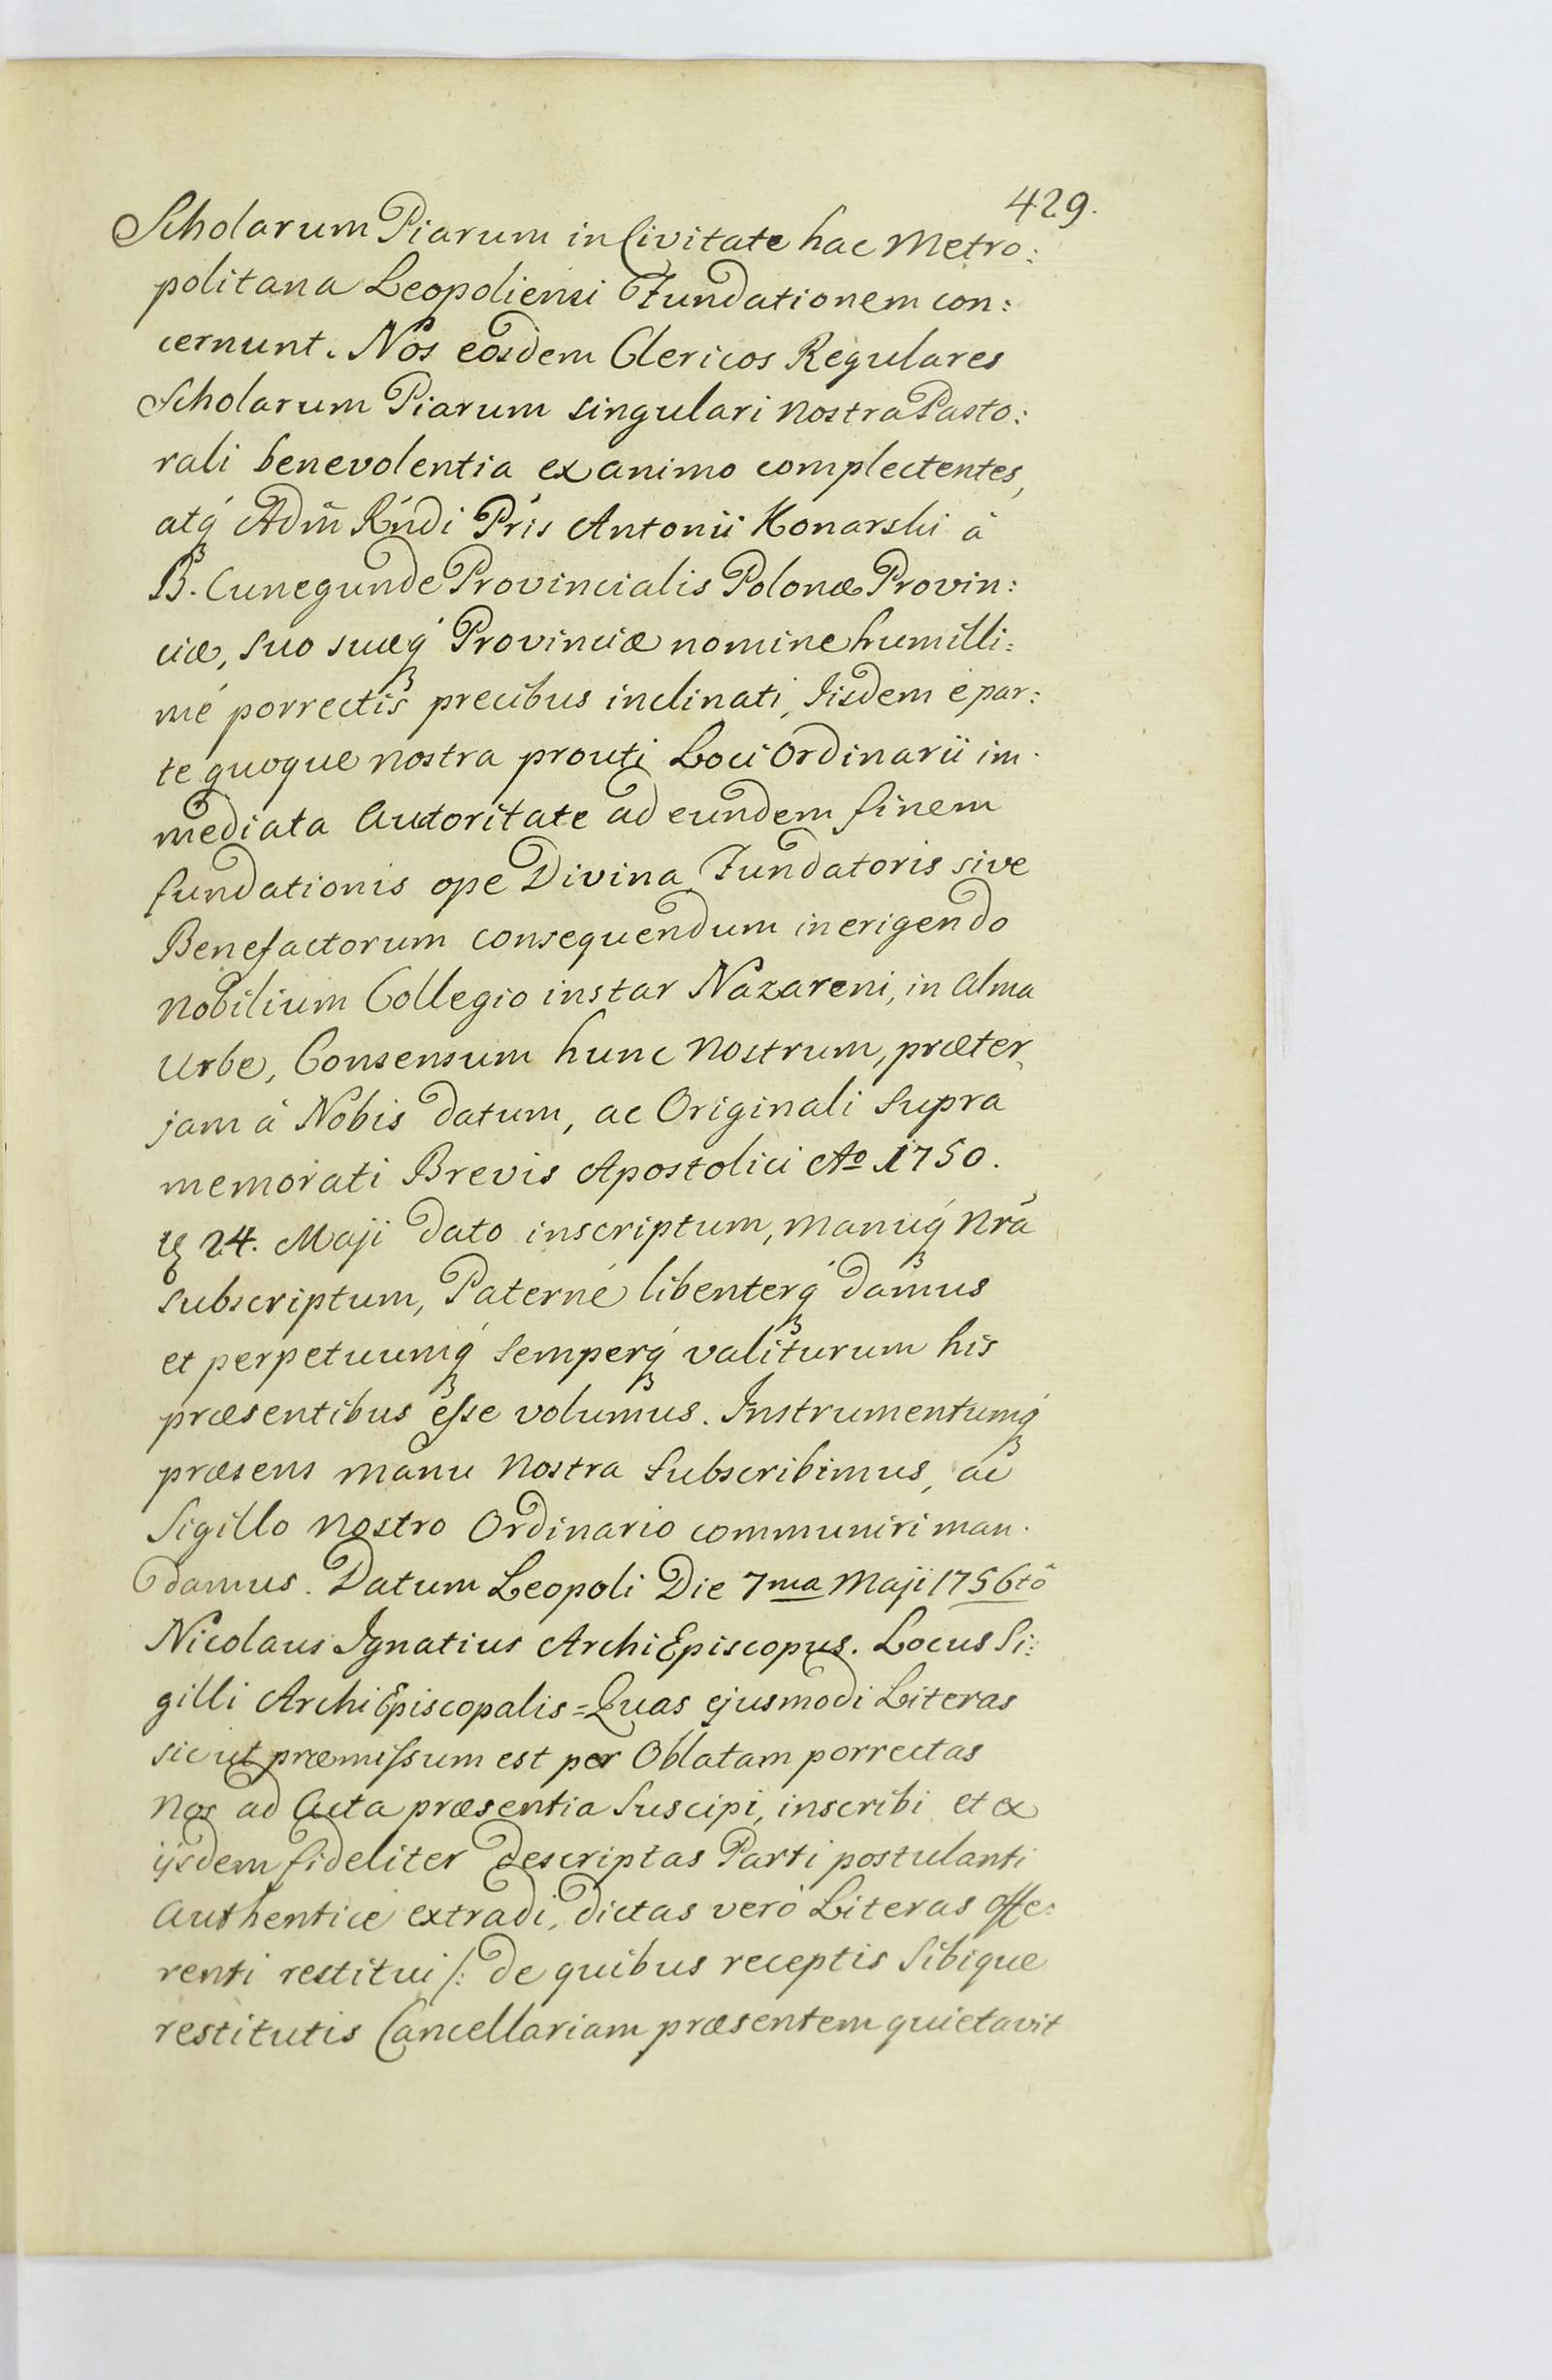 429.
Scholarum Piarum in Civitate hac Metro:
politana Leopoliensi Fundationem con:
cernunt. Nos eosdem Clericos Regulares
Scholarum Piarum singulari nostra Pasto:
rali benevolentia ex animo complectentes,
atq́ꝫ Adm̃ Rńdi Pŕis Antonii Konarski à
B. Cunegunde Provincialis Polonæ Provin:
ciæ, suo suæq́ꝫ Provinciæ nomine humilli:
mé porrectis precibus inclinati, Iisdem e par:
te quoque nostra prouti Loci Ordinarii im.
mediata Autoritate ad eundem finem
fundationis ope Divina Fundatoris sive
Benefactorum consequendum in erigendo
Nobilium Collegio instar Nazareni, in Alma
Urbe, Consensum hunc Nostrum, præter
jam à Nobis datum, ac Originali supra
memorati Brevis Apostolici Aº 1750.
24. Maji dato inscriptum, manuq́ꝫ Nr̃a
subscriptum, Paterné libenterq́ꝫ damus
et perpetuumq́ꝫ semperq́ꝫ valiturum his
præsentibus eſse volumus. Instrumentumq́ꝫ
præsens manu Nostra subscribimus, ac
Sigillo Nostro Ordinario communiri man.
damus. Datum Leopoli Die 7ma Maji 1756tô
Nicolaus Ignatius ArchiEpiscopus. Locus Si:
gilli ArchiEpiscopalis = Quas ejusmodi Literas
sicut præmiſsum est per Oblatam porrectas
Nos ad Acta præsentia suscipi, inscribi et ex
ijsdem fideliter descriptas Parti postulanti
Authenticé extradi, dictas veró Literas offe:
renti restitui /: de quibus receptis Sibique
restitutis Cancellariam præsentem quietavit